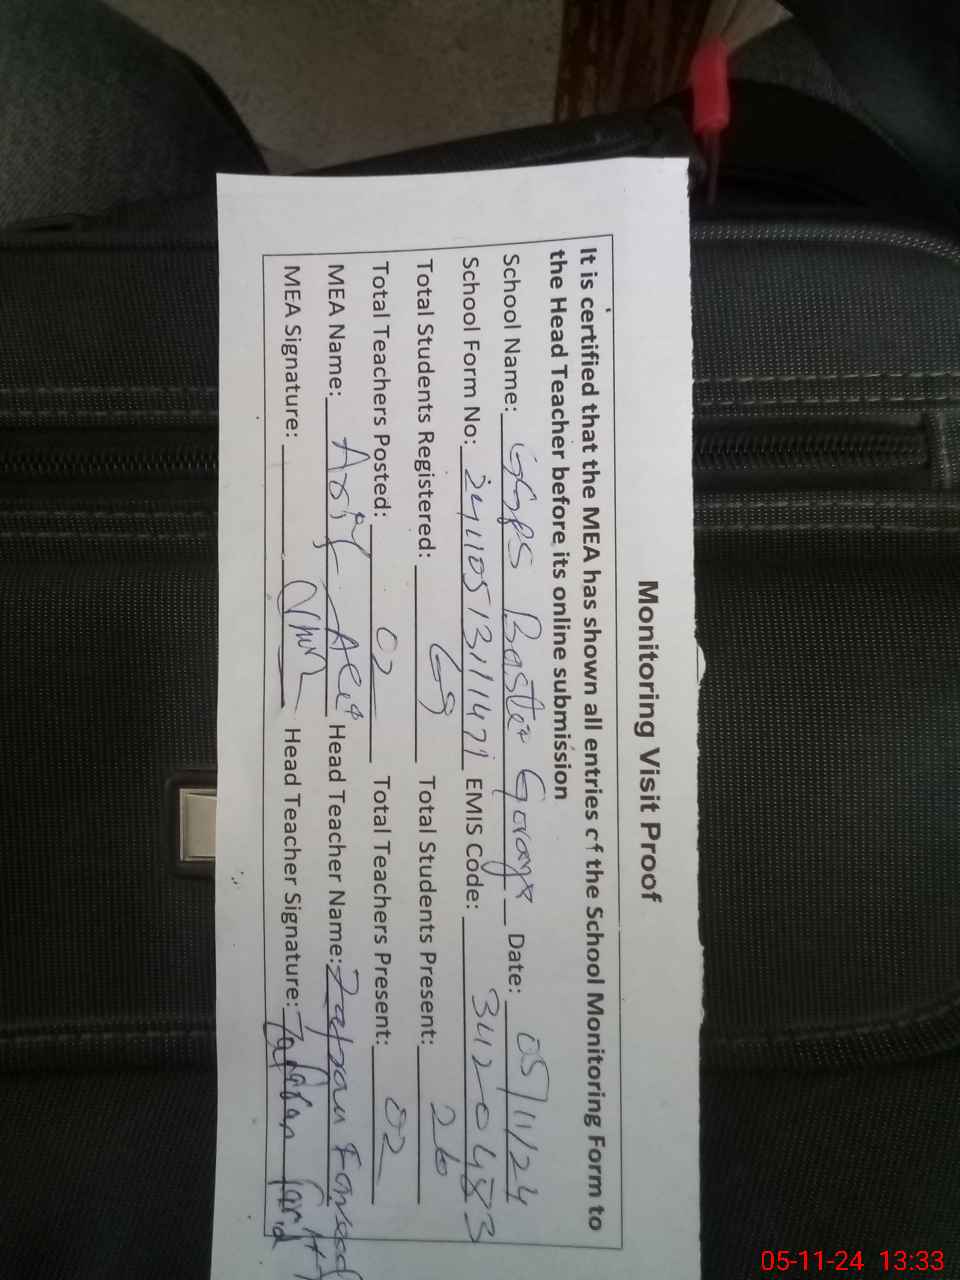 Monitoring Visit Proof
It is certified that the MEA has shown all entries of the School Monitoring Form to
the Head Teacher before its online submission
School Name: GGPS Basti Goraya Date: 05/11/24
School Form No: 24110513111471 EMIS Code: 34120483
Total Students Registered: 69 Total Students Present: 26
Total Teachers Posted: 02 Total Teachers Present: 02
MEA Name: Asif Ali Head Teacher Name:
MEA Signature: Head Teacher Signature:
05-11-24 13:33